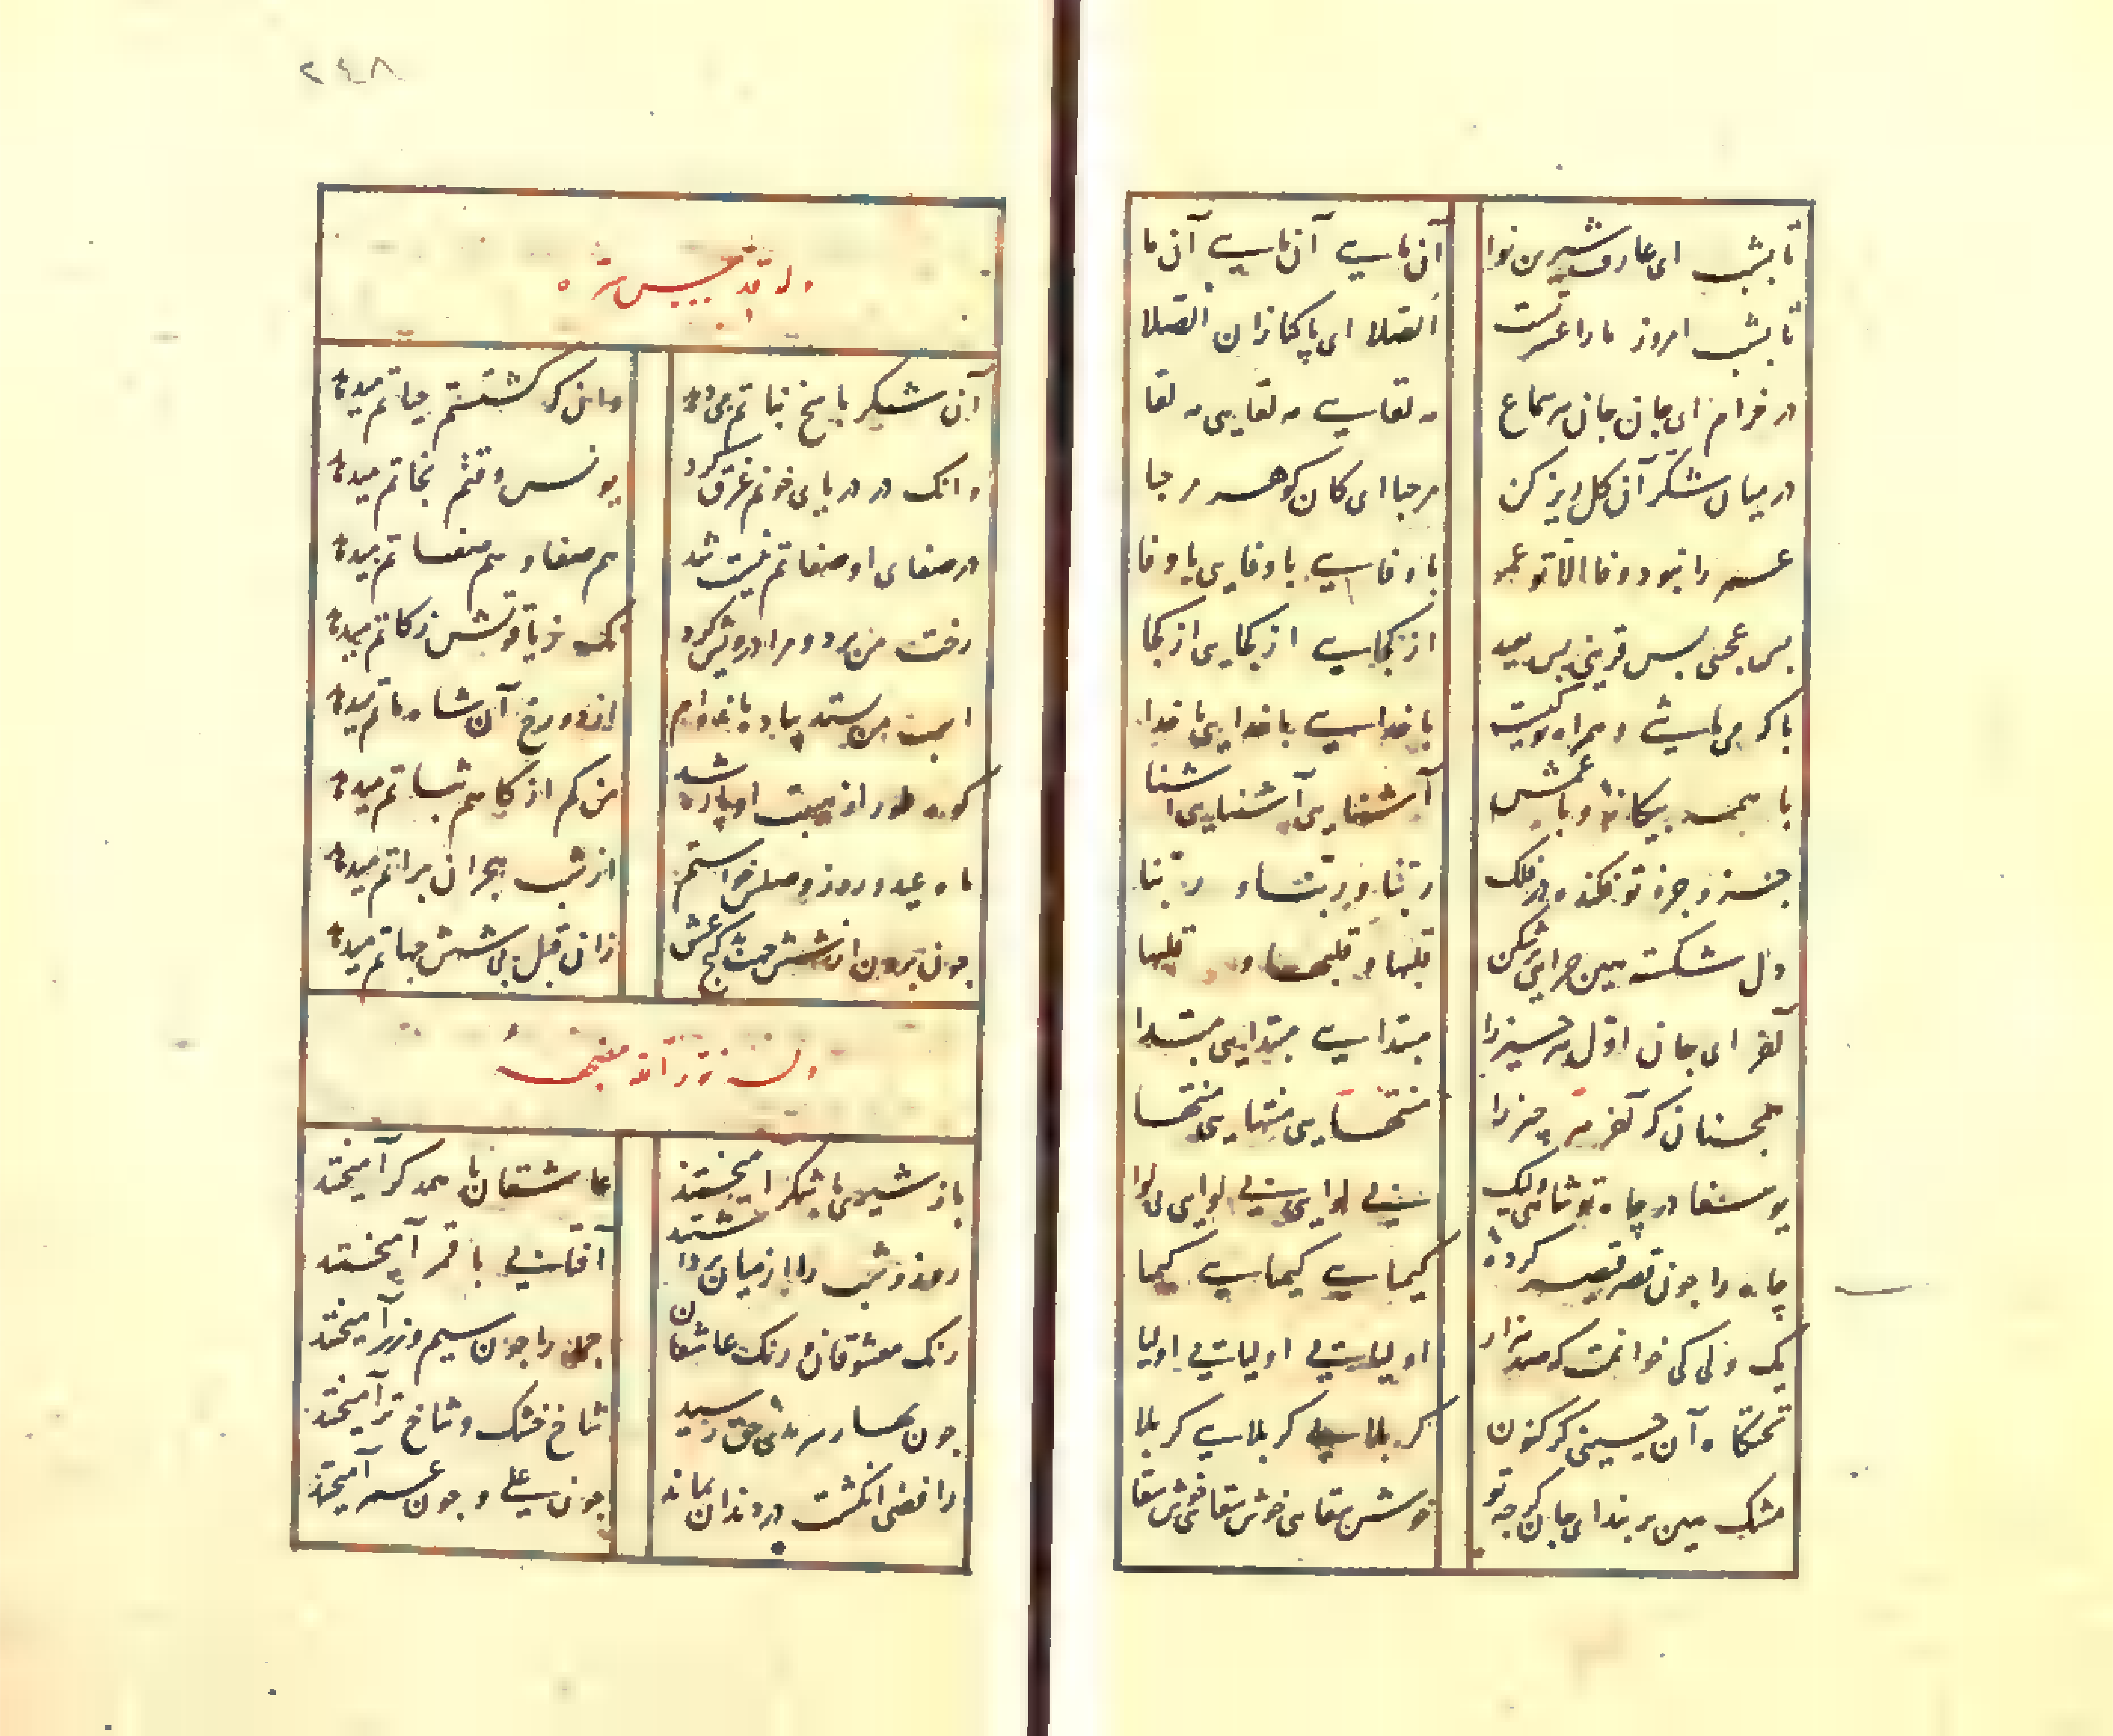 تا بشب ای عارف شیرین نوا
آن مایی آن مایی آن ما
تا بشب امروز ما را عشرتست
الصلا ای پاکبازان الصلا
در خرام ای جان جان هر سماع
مه لقایی مه لقایی مه لقا
در میان شکر آن کل ریز کن
مرحبا ای کان کوهر مرحبا
عمر را نبود وفا الا تو عمر
با وفایی با وفایی با وفا
بس عجبی بس قریبی بس بعید
از کجایی از کجایی از کجا
با که می باشی و همراه تو کیست
با خدایی با خدایی با خدا
با همه بیکانهٔ و با غمش
آشنایی آشنایی آشنا
جزو جزو تو فکنده در فلک
ربنا و ربنا و ربنا
دل شکسته هین چرایی بر شکن
قلبها و قلبها و قلبها
آخر ای جان اول هر چیز را
مبتدایی مبتدایی مبتدا
همچنان که آخر هر چیز را
منتهایی منتهایی منتها
یوسفا در چاه تو شاهی ولیک
بی لوایی بی لوایی بی لوا
چاه را چون قصر قیصر کردهٔ
کیمیایی کیمیایی کیمیا
یک ولی کی خوانمت که صد هزار
اولیایی اولیایی اولیا
تختکاه آن حسینی کر کنون
کربلایی کربلایی کربلا
مشک هین بر بند ای جان کر چه تو
خوش سقایی خوش سقایی خوش سقا
٢٤٨
وله قدس سره
آن شکر پاسخ نباتم می دهد
وانک کشتستم حیاتم میدهد
وانک در دریای خونم غرق کرد
یونس وقتم نجاتم میدهد
در صفای او صفاتم نیست شد
هم صفا و هم صفاتم میدهد
رخت من برد و مرا درویش کرد
نک ز یاقوتش زکاتم میدهد
اسب من بستد پیاده مانده ام
از دو رخ آن شاه ماتم میدهد
کوه طور از هیبت او پاره شد
من کم از کاهم ثباتم میدهد
ماه عید و روز وصلش خواستم
از شب هجران براتم میدهد
چون برون از شش جهت کنج غمش
زان قبل بی شش جهاتم میدهد
باز شیری با شکر آمیختند
عاشقان با همدکر آمیختند
روز و شب را از میان برداشتند
آفتابی با قمر آمیختند
رنک معشوقان و رنک عاشقان
جمله را چون سیم و زر آمیختند
چون بهار سرمدی حق رسید
شاخ خشک و شاخ تر آمیختند
رافضی انکشت در دندان بماند
چون علی و چون عمر آمیختند